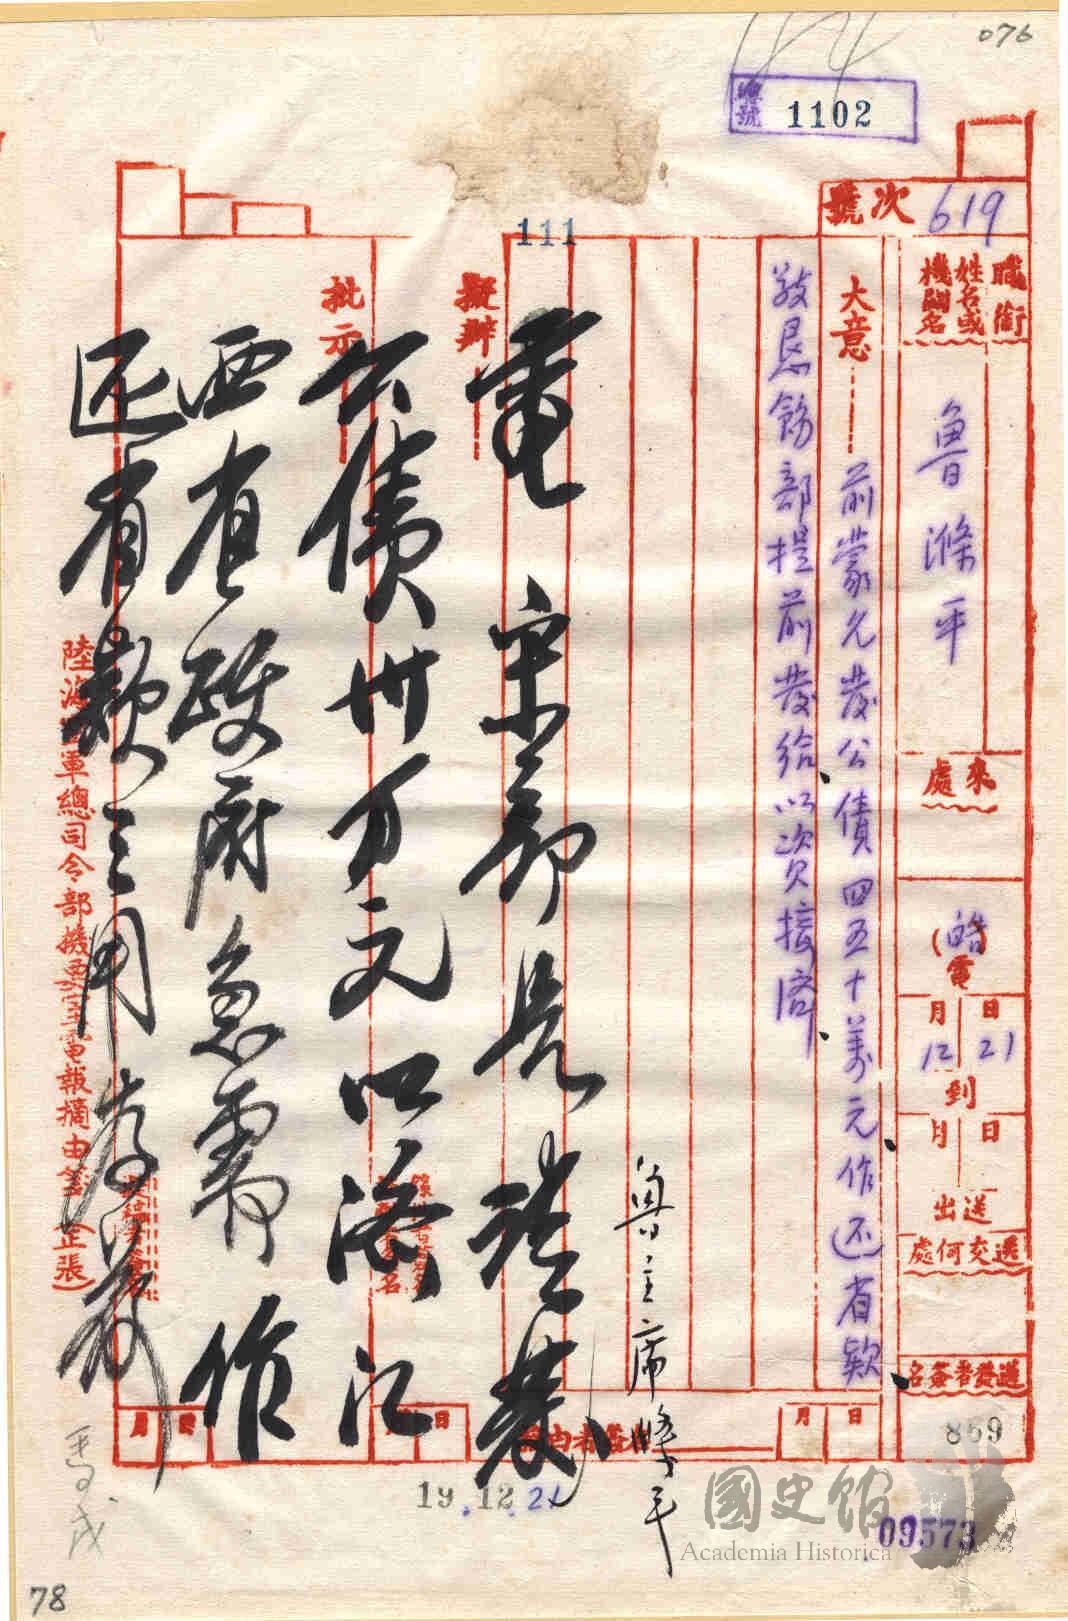 076
總號 1102
號次 619
111
職銜
姓名或
機關名
魯滌平
來處
(皓)電
月 日
12 21
到
月 日
送出
送交何處
送發者簽名
859
大意
前蒙允發公債四五十萬元作还省欵
敬恳飭部提前發給以資接濟
月 日
擬辦
批示
電 宋部長 請發
公債卅万元以济江
西省政府急需 作
还省款之用
魯主席滌平
陸海空軍總司令部機要室電報摘由箋(正張)
月
19.12.21
馬戌
國史館
Academia Historica
09573
78